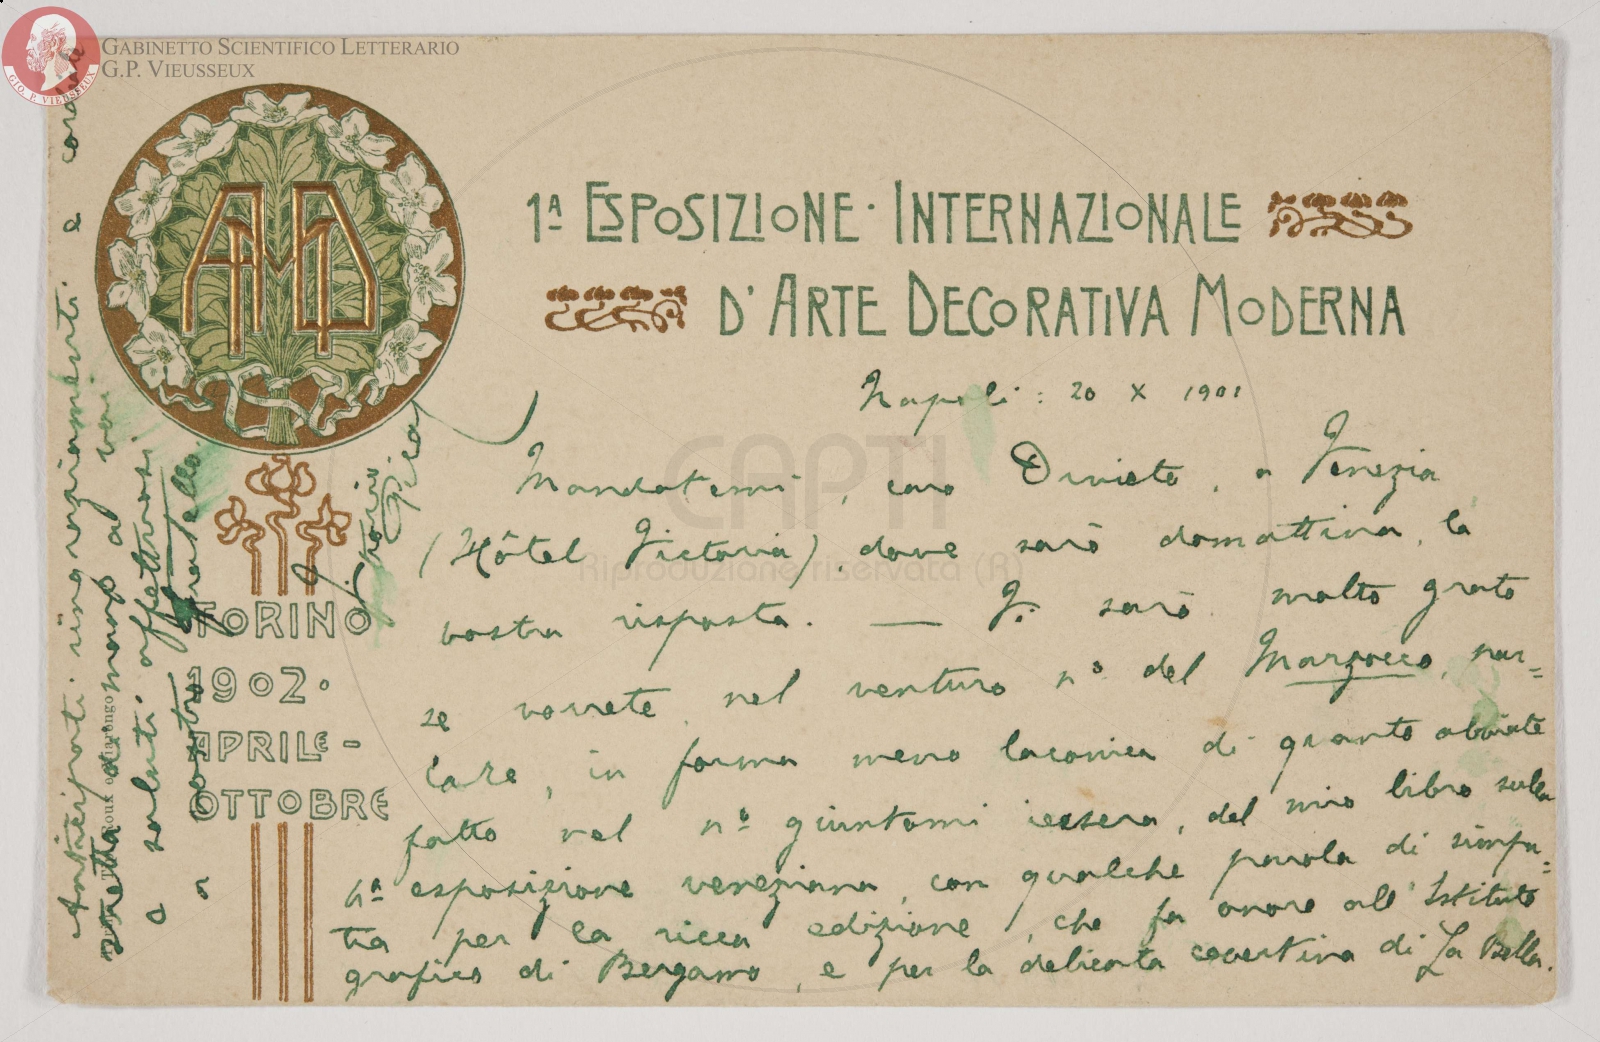 GABINETTO SCIENTIFICO LETTERARIO
G.P. VIEUSSEUX
GIO. P. VIEUSSEUX
1ª ESPOSIZIONE · INTERNAZIONALE
D'ARTE DECORATIVA MODERNA
AMD
TORINO
1902.
APRILE -
OTTOBRE
CAPTI
Riproduzione riservata (R)
Napoli: 20 X 1901
Mandatemi, caro Orvieto, a Venezia
(Hôtel Victoria), dove sarò domattina, la
vostra risposta. — Vi sarò molto grato
se vorrete, nel venturo nº del Marzocco, par=
lare, in forma meno laconica di quanto abbiate
fatto nel nº giuntomi iersera, del mio libro sulla
4ª esposizione veneziana, con qualche parola di simpa=
tia per la ricca edizione, che fa onore all'Istituto
grafico di Bergamo, e per la delicata covertina di La Bella.
Anticipati ringraziamenti e cordiale
stretta di mano a voi
e saluti affettuosi
a vostro fratello.
V. Pica